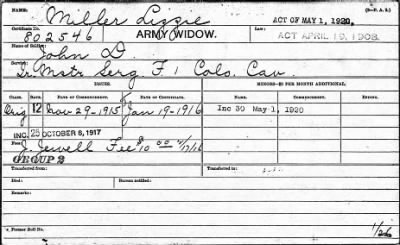 Miller Lizzie
ACT OF MAY 1, 1920.
Certificate No.
802546
ARMY WIDOW.
ACT APRIL 19, 1908.
Name of Soldier:
John D.
Service:
Qr Mstr Serg. F 1 Colo. Cav.
ISSUES.
MINORS—$2 PER MONTH ADDITIONAL.
CLASS. RATE. DATE OF COMMENCEMENT. DATE OF CERTIFICATE. COMMENCEMENT.
Orig 12 Nov-29-1915 Jan-19-1916 Inc 30 May 1, 1920
INC. 25 OCTOBER 6, 1917
J. Jewell Fee $10 00
GROUP 2
Transferred from: Transferred to:
Died: Bureau notified:
Remarks:
Former Roll No.